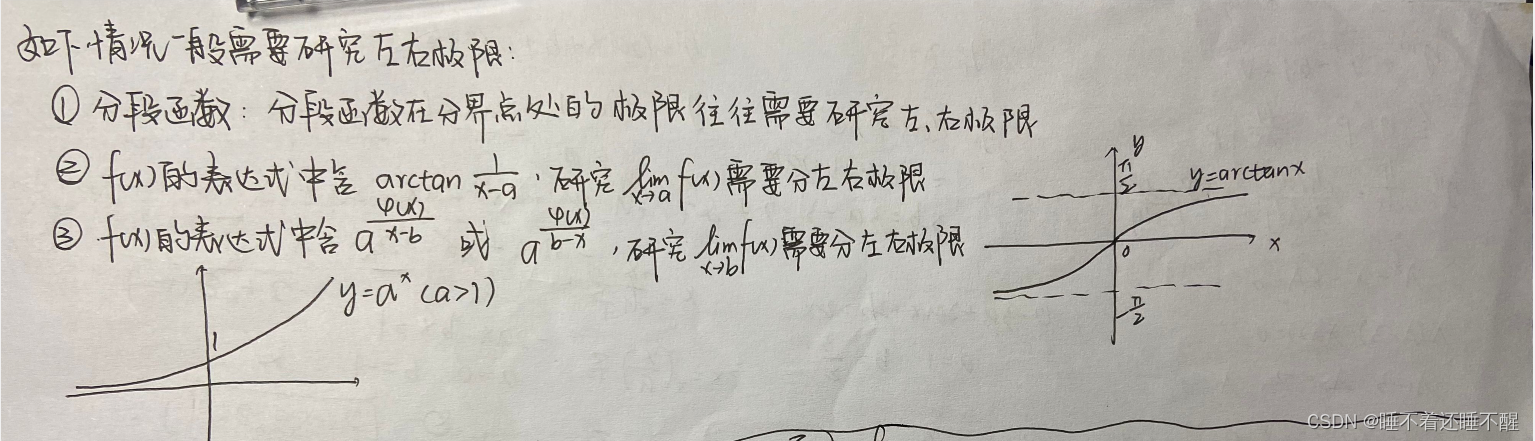 如下情况一般需要研究左右极限:
① 分段函数: 分段函数在分界点处的极限往往需要研究左、右极限
② f(x)的表达式中含 arctan 1/(x-a), 研究 lim x→a f(x)需要分左右极限
③ f(x)的表达式中含 a^(φ(x)/(x-b)) 或 a^(φ(x)/(b-x)), 研究 lim x→b f(x)需要分左右极限
y
π/2
y=arctanx
0
x
-π/2
y=a^x (a>1)
1
CSDN @睡不着还睡不醒